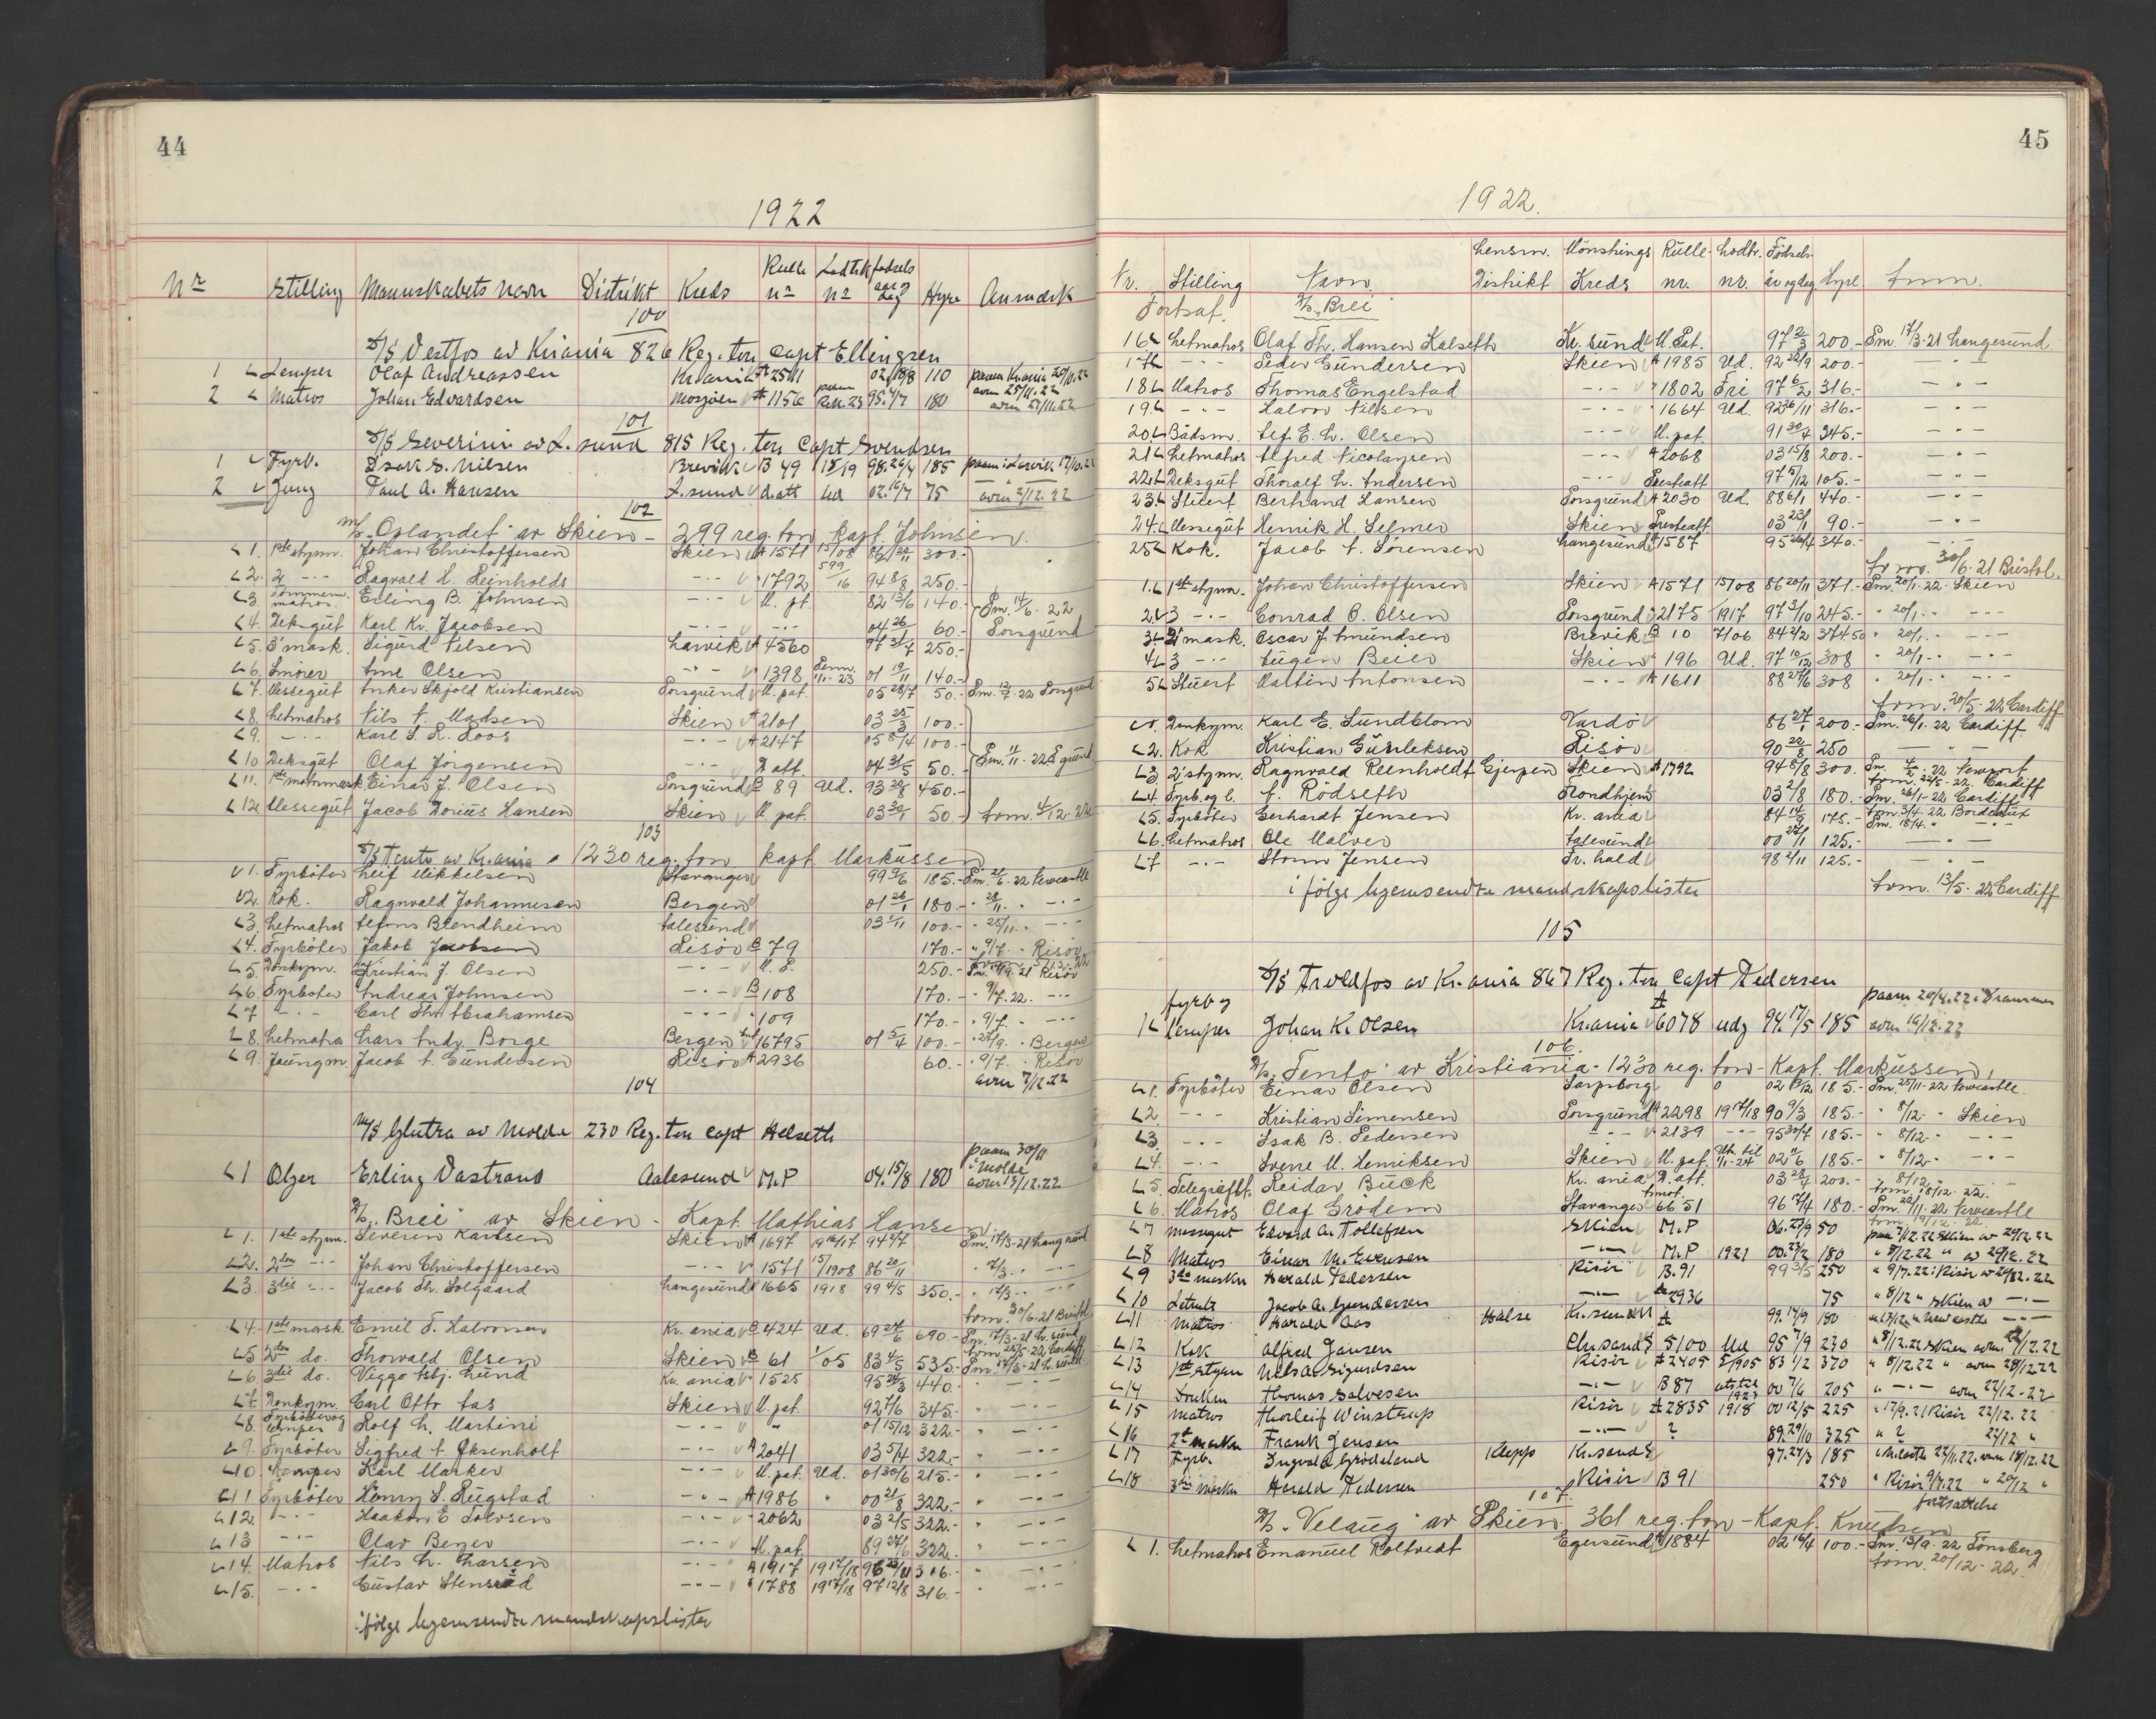 44
1922
Nr Stilling Mannskabets navn Distrikt Kreds Rulle nr Lodtr. nr fødsels aar og dag Hyre Anmærk
100
S/S Vestfos av Kr.ania 826 Reg. ton Capt Ellingsen
1 Lemper Olaf Andreassen Kr.ania A 2511 02 18/8 110 paam Kr.ania 20/11.22 avm 25/11.22
2 Matros Johan Edvardsen Mosjøen A 1156 95 4/7 180 avm 27/11.22
101
S/S Severin av L.sund 815 Reg. ton Capt Svendsen
1 Fyrb. Isak S. Nilsen Brevik B 49 15/19 98 26/4 185 paam i Larvik 17/10.22
2 Jung Paul A. Hansen L.sund d.att Ud 02 16/7 75 avm 2/12.22
102
M/S "Oplandet" av Skien - 299 reg. ton kapt. Johnsen.
1. 1ste styrm. Johan Christoffersen Skien A 1571 15/08 86 20/11 300.-
2. 2 -"- Ragvald H. Reinholds -"- 1792 599/16 94 8/8 250.-
3. tømmerm. matros. Erling B. Johnsen -"- M. pt. 82 13/6 140.- Pm. 14/6. 22
4. Deksgut Karl Kr. Jacobsen -"- -"- 04 26 60.- Porsgrund
5. 3' mask. Sigurd Nilsen Larvik A 4560 97 31/7 250.-
6. Smører Arne Olsen -"- 1398 1/11-23 01 19/11 140.-
7. Messegut Anker Skjold Kristiansen Porsgrund M. pat. 05 28/7 50.- Pm. 12/7. 22 Porsgrund
8. Letmatros Nils A. Madsen Skien A 2101 03 25/3 100.-
9. -"- Karl S. R. Roos -"- A 2147 05 8/4 100.-
10 Deksgut Olaf Jörgensen -"- D. att. 04 31/5 50.- Pm. 11. 22 P.grund
11. 1ste motormask Einar J. Olsen Porsgrund B 89 Ud. 93 20/8 450.-
12 Messegut Jacob Dorius Hansen Skien M. pat. 03 30/1 50.- Avm. 4/12. 22
103
S/S Tento av Kr.ania 1230 reg. ton kapt Markussen
1. Fyrböter Leif Mikkelsen Stavanger 99 9/6 185.- Pm. 21/6. 22 Newcastle
2. Kok. Ragnvald Johannesen Bergen 01 26/1 180.- " 28/11. " -"-
3. Letmatros Alfons Blendheim Aalesund 03 1/11 100.- " 25/11. " -"-
4. Fyrböter Jakob Jacobsen Risör B 79 170.- " 9/7. - Risör
5. Donkym. Kristian J. Olsen -"- M. P. 250.- Pm. 17/9. 21 Risör
6. Fyrböter Andreas Johnsen -"- B 108 170.- " 9/7. 22. -"-
7 -"- Carl Thr. Abrahamsen -"- " 109 170.- " 9/7. " -"-
8. Letmatros Lars Andr. Borge Bergen 16795 01 5/4 100.- " 27/9. " Bergen
9. Jaungm. Jacob A. Gundersen Risör A 2936 60.- " 9/7. " Risör
avm 7/12.22
104
M/S Glutra av Molde 230 Reg. ton Capt Helseth
1 Olger Erling Vastrand Aalesund M.P 04. 15/8 180 paam 30/11 i Molde avm 13/12.22
D/S "Brei" av Skien - Kapt. Mathias Hansen
1. 1ste styrm. Severin Karlsen Skien A 1697 1916/17 94 2/7 Pm. 17/3-21 Langesund
2. 2den -"- Johan Christoffersen -"- 1571 15/1908 86 20/11 " 7/3. " -"-
3. 3die -"- Jacob Th. Solgaard Langesund 1665 1918 99 4/5 350.- " 17/3. " -"-
Avm. 30/6-21 Bristol
4. 1ste mask. Emil T. Halvorsen Kr. ania B 424 Ud. 69 27/6 690.- Pm. 17/3-21 L.sund
5. 2den do. Thorvald Olsen Skien B 61 1/05 83 4/5 535.- Avm. 25/5-22 Cardiff
6. 3die do. Viggo Asbj. Lund Kr. ania 1525 95 24/3 440.- Pm. 17/3-21 L. sund
7. Donkym. Carl Otto Aas Skien M. pat. 92 7/6 345.- " -"-
8. Fyrböter og lemper Rolf L. Martini -"- " 01 15/12 322.- " -"-
9. Fyrböter Sigfred A. Oksenholt -"- A 2041 03 5/4 322.- " -"-
10 Lemper Karl Marker -"- M. pat. Ud. 01 30/6 215.- " -"-
11 Fyrböter Henry S. Rugstad -"- A 1986 " 00 21/8 322.- " -"-
12 -"- Haakon E Tolvsen -"- 2062 03 2/5 322.- " -"-
13 -"- Olav Berger -"- M. pat. 89 24/6 322.- " -"-
14. Matros Nils L. Larsen -"- A 1917 1917/18 96 23/11 316.- " -"-
15. -"- Gustav Stensrud -"- 1788 1917/18 97 12/8 316.- " -"-
ifölge hjemsendte mandskapslister
45
1922.
Nr. Stilling Navn Lensm. Distrikt Mönstrings Kreds Rulle nr. Lodtr. nr. Födsels- år og dag Hyre Anm.
Fortsat. D/S "Brei"
16 Letmatros Olaf Th. Hansen Kalseth Kr. sund M. Pat. 97 2/3 200.- Pm. 17/3-21 Langesund
17 -"- Peder Gundersen Skien A 1985 Ud. 92 22/9 200.- -"-
18 Matros Thomas Engelstad -"- 1802 Fri 97 6/2 316.- -"-
19. -"- Halvor Nilsen -"- 1664 Ud. 92 26/11 316.- -"-
20. Bådsm. Alf. E. L. Olsen -"- M. pat. 91 30/4 345.- -"-
21 Letmatros Alfred Nicolaysen -"- A 2068 03 15/8 200.- -"-
22 Deksgut Thoralf L. Andersen -"- Presteatt 97 5/12 105.- -"-
23 Stuert Bertrand Hansen Porsgrund A 2030 Ud. 88 6/1 440.- -"-
24 Messegut Henrik H. Selmer Skien Presteatt. 03 23/1 90.- -"-
25 Kok. Jacob A. Sörensen Langesund 1587 95 26/4 340.- -"-
30/6-21 Bristol.
1. 1ste styrm. Johan Christoffersen Skien A 1571 15/08 86 20/11 371.- Pm. 20/1-22 Skien
2 3 -"- Conrad O. Olsen Porsgrund 2175 1917 97 3/10 245.- " 20/1. " -"-
3 2' mask. Oscar J. Amundsen Brevik B 10 7/06 84 2/2 374 50 " 20/1. " -"-
4 3 -"- Eugen Beier Skien " 196 Ud. 97 10/12 308 " 20/1. " -"-
5 Stuert Martin Antonsen -"- A 1611 88 27/6 308 " 20/1. " -"-
Avm. 20/5-22 Cardiff
1. Donkym. Karl E. Sundblom Vardö 86 27/1 200.- Pm. 26/1. 22 Cardiff
2. Kok Kristian Gunleksen Risör 90 22/8 250 -"-
3 2' styrm. Ragnvald Reenholdt Gjerpen Skien A 1792 94 8/8 300. Pm. 4/2. 22 Newport
4 Fyrb. og l. A. Rödseth Trondhjem 03 2/8 180.- Pm. 26/1-22 Cardiff
5. Fyrböter Gerhardt Jensen Kr. ania 84 14/5 175.- Avm 3/4. 22 Bordeaux
6. Letmatros Ole Malver Aalesund 00 27/1 125.- -"-
7 -"- Storm Jensen Fr. hald 98 2/11 125.- -"-
i fölge hjemsendte mandskapslister Avm. 13/5-22 Cardiff
105
S/S Arveldfos av Kr.ania 867 Reg. ton Capt Pedersen
1 fyrb og lemper Johan K. Olsen Kr.ania A 6078 udg 94. 17/5 185 paam 20/4.22 i Drammen avm 16/12.22
106.
D/S "Tento" av Kristiania - 1230 reg. ton - Kapt. Markussen.
1. Fyrböter Einar Olsen Sarpsborg 0 02 13/12 185.- Pm. 25/11-22 Newcastle
2. -"- Kristian Simensen Porsgrund A 2298 1917/18 90 9/3 185.- " 8/12. " Skien
3 -"- Isak B. Pedersen -"- 2139 -"- 95 30/7 185.- " 8/12. " -"-
4. -"- Sverre M. Henriksen Skien M. pat. Uts. til 1/1-24 02 11/6 185.- " 8/12. " -"-
5. Telegrafist. Reidar Buck Kr. ania D. att. 03 28/7 200.- " 8/12. " Avm. 18/12. 22.
6. Matros Olaf Grödem Stavanger 6651 96 17/4 180.- Pm. 22/11. 22 Newcastle
7 messegut Edvard A. Tollefsen Skien M.P 06. 23/9 50 paam 7/12.22 Skien av 29/12.22
8 Matros Einar M. Evensen -"- M.P 1921 00 23/2 180 " 8/12.22 " av 29/12.22
9 3die maskn Harald Pedersen Risör B.91 99 3/5 250 " 9/7.22 i Risör av 20/12.22
10 Letmatr Jacob A. Gundersen -"- A 2936 75 " 8/12 " Skien av -"-
11 Matros Harald Aas Halse Kr.sund A 99. 17/9 180
12 Kok Alfred Jansen Chr.sand 5100 Ud 95 7/9 230 " 8/12.22 Skien avm. 22/12.22
13 1ste styrm Nils A. Sigurdsen Risör A 2405 5/1905 83 1/2 370 " 8/12.22 " avm 28/12.22
14 Donkm Thomas Salvesen -"- B 87 uts til 1923 00 7/6 205 " -"- avm 22/12-22
15 Matros Thorleif Winstrup Risör A 2835 1918 00 12/5 225 " 17/9. 21 Risör 22/12. 22
16 2t maskn Frank Jensen -"- ? 89. 29/10 325 " ? 22/12 "
17 Fyrb. Ingvald Grödeland Klepp Kr.sand 97. 24/3 185 " N.castle 22/11.22. avm 18/12.22
18 3die maskn Harald Pedersen Risör B 91 250 " Risör 9/7.22 " 20/12 "
fortsættelse
107.
D/S "Velaug" av Skien. 361 reg. ton - Kapt. Knutsen
1. Letmatros Emanuel Roltvedt Egersund 1884 02 16/4 100.- Pm. 13/9. 22 Tönsberg
Avm. 20/12-22.